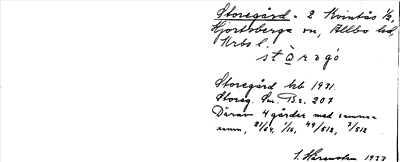 Storegård - 2 Kvintås 1/2,
Hjortsberga sn, Allbo hd,
Krbs l.
Storegård kb 1931.
Storeg. Sn. B.s. 207
Därav 4 gårder med samma
namn, 21/64, 1/16, 49/512, 7/512
1933